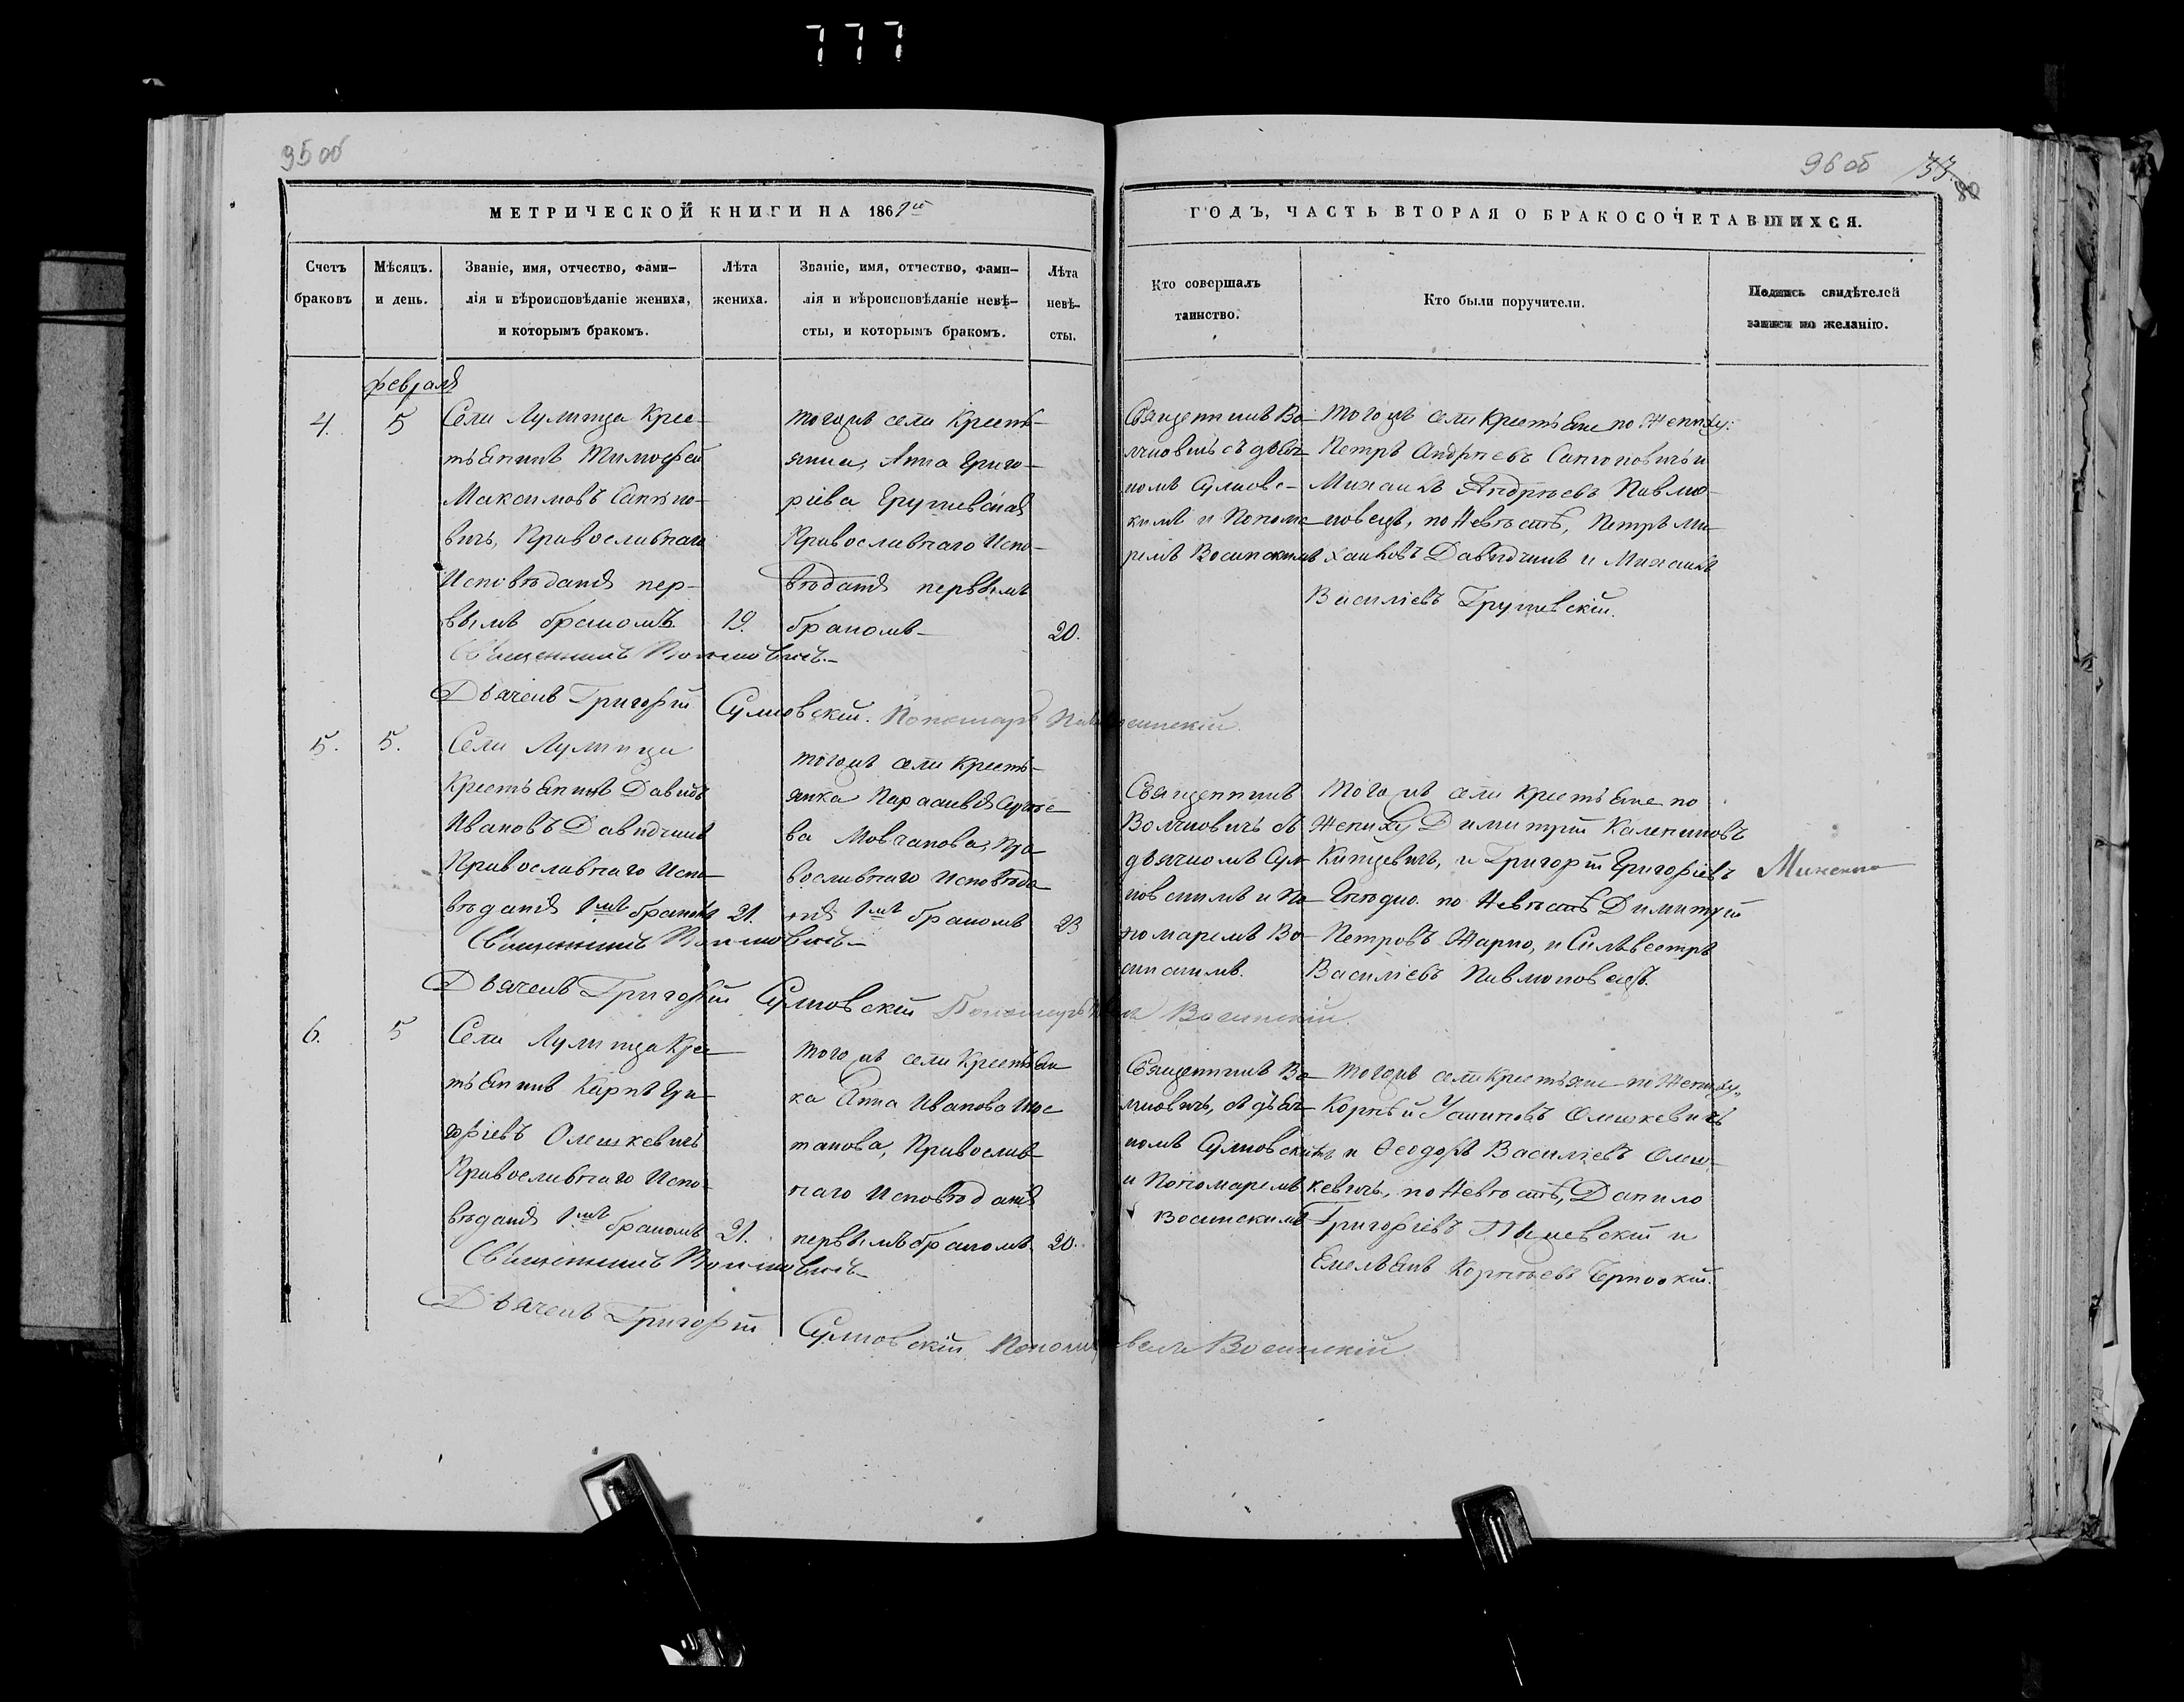 777
95 об
96 об
80
МЕТРИЧЕСКОЙ КНИГИ НА 1869
ГОДЪ, ЧАСТЬ ВТОРАЯ О БРАКОСОЧЕТАВШИХСЯ.
Счетъ браковъ
Мѣсяцъ. и день.
Званіе, имя, отчество, фами-
лія и вѣроисповѣданіе жениха,
и которымъ бракомъ.
Лѣта жениха.
Званіе, имя, отчество, фами-
лія и вѣроисповѣданіе невѣ-
сты, и которымъ бракомъ.
Лѣта невѣ-
сты.
Кто совершалъ
таинство.
Кто были поручители.
Подпись свидѣтелей
записи по желанію.
февраля
4.
5
Села Лулинца Крес-
тьянинъ Тимофей
Максимовъ
вичъ, Православнаго
Исповѣданія пер-
вымъ бракомъ
19.
тогожъ села Кресть-
янка, Анна Григо-
ріева Грушевская
Православнаго Испо-
вѣданія первымъ
бракомъ
20.
Священникъ Во-
лковичъ съ дьяч-
комъ Сулковс-
кимъ и Понома-
ремъ Восинскимъ
тогожъ села Крестьяне по Жениху:
Петръ Андреевъ и
Михаилъ Андреевъ Павлю-
ковецъ, по Невѣстѣ, Петръ Ми-
хайловъ Давидчикъ и Михаилъ
Василіевъ Грушевскій.
Священникъ
Дьячекъ Григорій Сулковскій. Пономарь
5.
5.
Села Лулинца
Крестьянинъ Давидъ
Ивановъ Давидчикъ
Православнаго Испо-
вѣданія 1мъ бракомъ
21.
тогожъ села Кресть-
янка Параскевія
ва Мовчанова, Пра-
вославнаго Исповѣда-
нія 1мъ бракомъ
23
Священникъ
Волковичъ съ
дьячкомъ Сул-
ковскимъ и По-
номаремъ Во-
синскимъ.
Тогожъ села крестьяне по
Жениху Димитрій Калениковъ
Китцевичъ, и Григорій Григоріевъ
по Невѣстѣ Димитрій
Петровъ Жарко, и Сильвестръ
Василіевъ Павлюковецъ.
Священникъ
Дьячекъ Григорій Сулковскій Пономарь Восинскій
6.
5
Села Лулинца Кре-
тьянинъ Карпъ Гри-
горіевъ Олешкевичъ
Православнаго Испо-
вѣданія 1мъ бракомъ
21.
того жъ села Крестьян
ка Анна Иванова
танова, Православ-
наго Исповѣданія
первымъ бракомъ
20.
Священникъ Во-
лковичъ, съ дьяч-
комъ Сулковскимъ
и Пономаремъ
Восинскимъ
тогожъ села крестьяне по Жениху,
Корней Олешкевичъ
и Феодоръ Василіевъ Олеш-
кевичъ, по Невѣстѣ, Данило
Григоріевъ и
Емельянъ Корнѣевъ
Священникъ
Дьячекъ Григорій Сулковскій. Восинскій